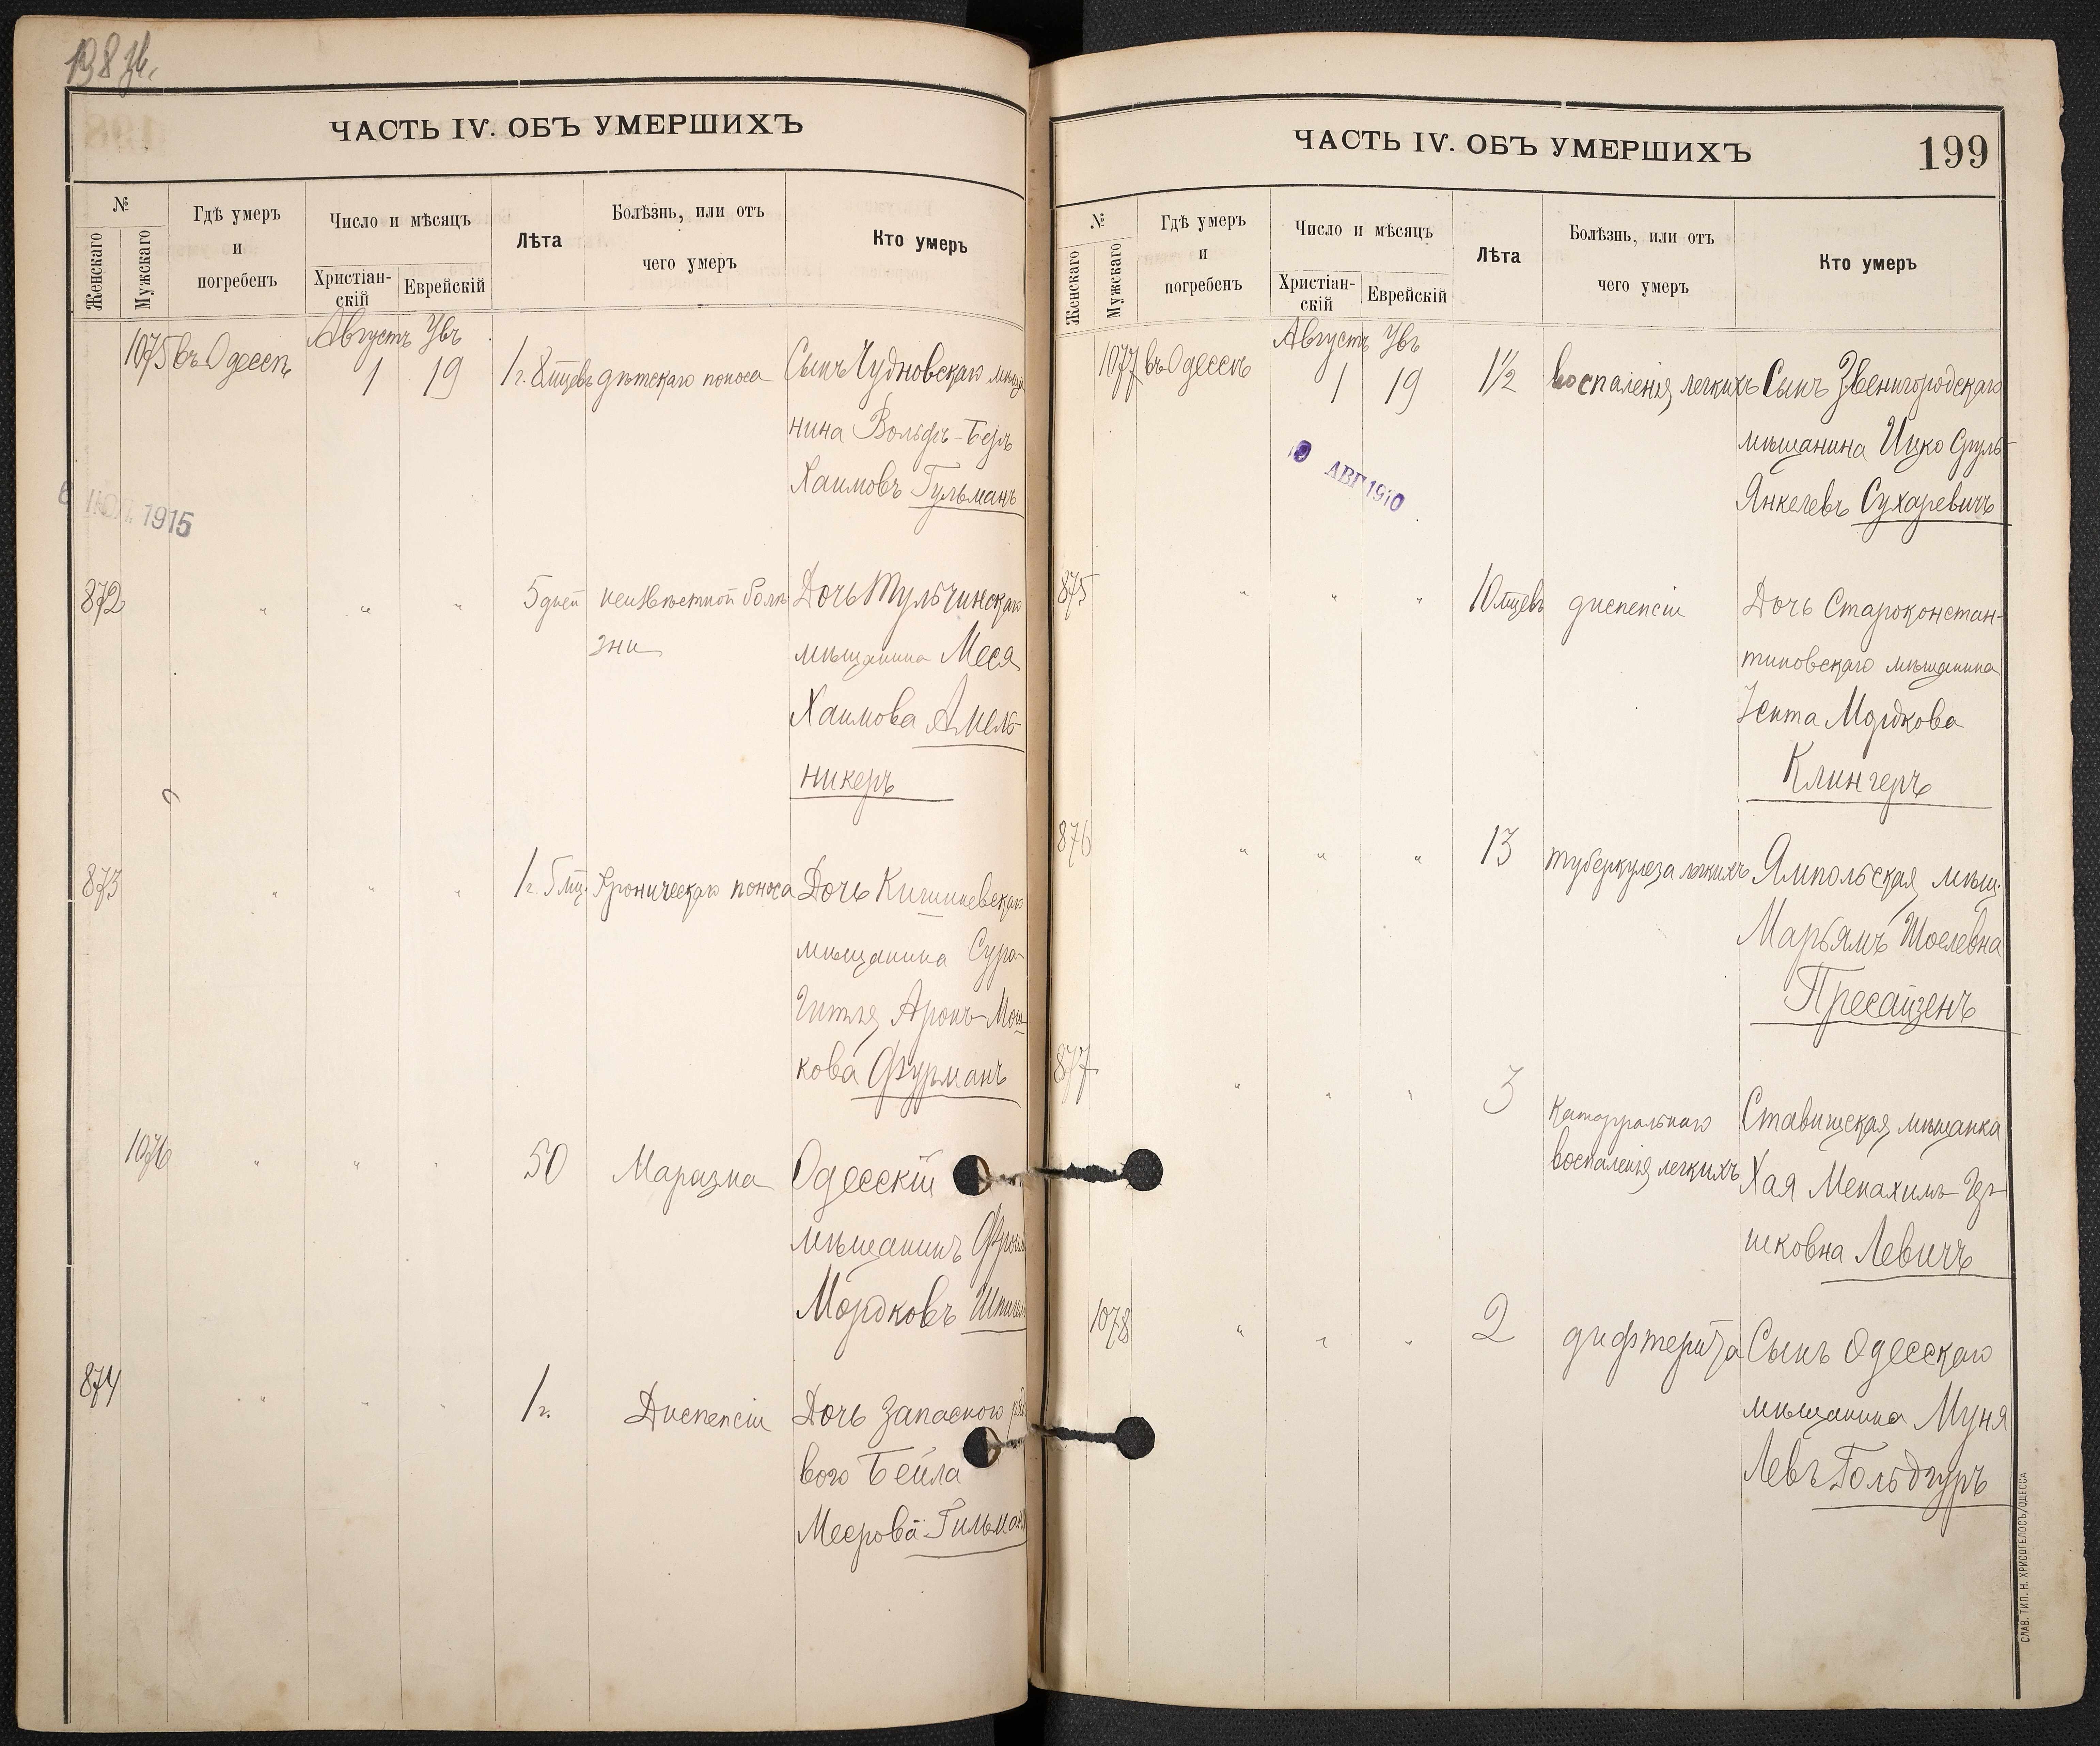 ЧАСТЬ IV. ОБЪ УМЕРШИХЪ
№
Женскаго
Мужскаго
Гдѣ умеръ
и
погребенъ
Число и мѣсяцъ
Христіан-
скій
Еврейскій
Лѣта
Болѣзнь, или отъ
чего умеръ
Кто умеръ
Августъ Увъ
1075 въ Одессѣ 1 19 1 г. 8 мцевъ дѣтскаго поноса Сынъ Чудновскаго мѣща
нина Вольфъ-Беръ
Хаимовъ Гульманъ
6 ІЮЛ. 1915
872 " " " 5 дней неизвѣстной болѣ- Дочь Тульчинскаго
зни мѣщанина Меся
Хаимова Амель-
никеръ
873 " " " 1 г. 5 мц. Хроническаго поноса Дочь Кишиневскаго
мѣщанина Сура-
Гитля Аронъ-Мош-
кова Фурманъ
1076 " " " 50 Маразма Одесскій
мѣщанинъ
Мордковъ
874 " " " 1 г. Диспепсіи Дочь запасного рядо
вого Бейла
Меерова Гильманъ
ЧАСТЬ IV. ОБЪ УМЕРШИХЪ
199
№
Женскаго
Мужскаго
Гдѣ умеръ
и
погребенъ
Число и мѣсяцъ
Христіан-
скій
Еврейскій
Лѣта
Болѣзнь, или отъ
чего умеръ
Кто умеръ
Августъ Увъ
1077 въ Одессѣ 1 19 1½ воспаленія легкихъ Сынъ Звенигородскаго
мѣщанина Ицко Сруль
Янкелевъ Сухаревичъ
АВГ 1910
875 " " " 10 мцевъ диспепсіи Дочь Староконстан-
тиновскаго мѣщанина
Іента Мордкова
Клингеръ
876 " " " 13 туберкулеза легкихъ Ямпольская мѣщ.
Марьямъ Шоелевна
Пресайзенъ
877 " " " 3 катарральнаго Ставищская мѣщанка
воспаленія легкихъ Хая Менахимъ-Иц-
иковна Левичъ
1078 " " " 2 дифтерита Сынъ Одесскаго
мѣщанина Муня
Левъ Гольдгуръ
СЛАВ. ТИП. Н. ХРИСОГЕЛОСЪ, ОДЕССА